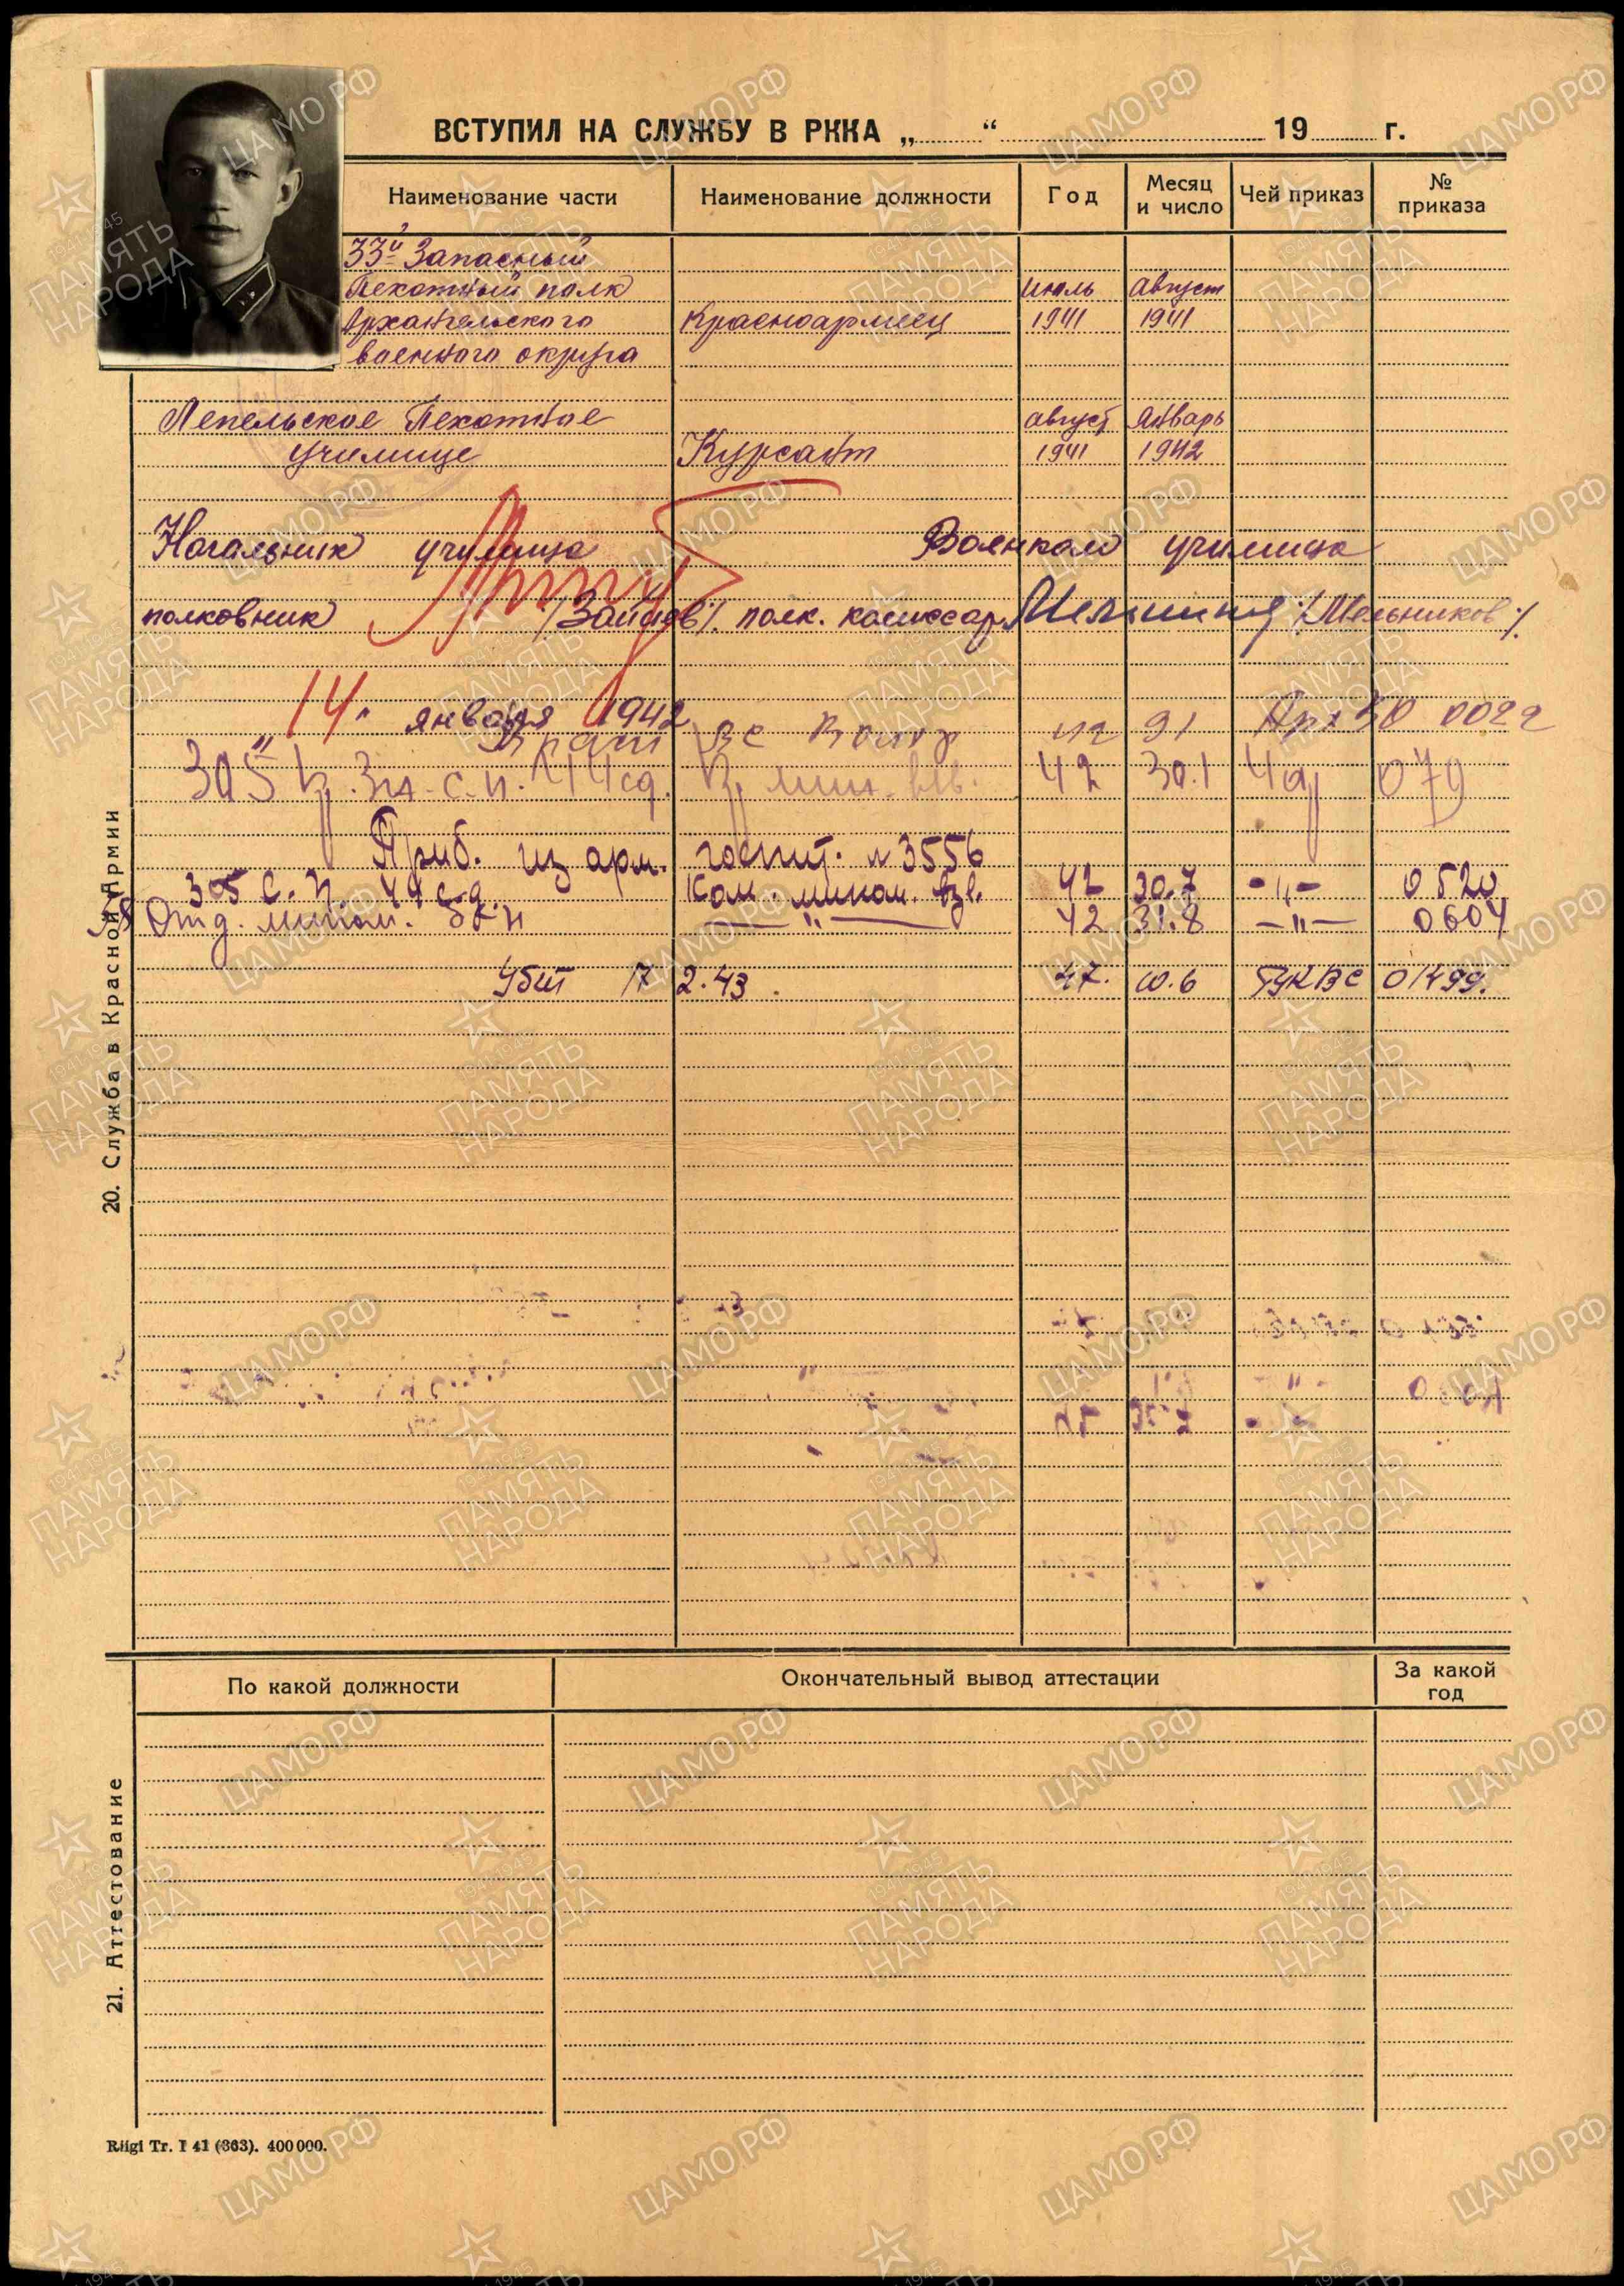 ВСТУПИЛ НА СЛУЖБУ В РККА „ “ 19 г.
Наименование части Наименование должности Год Месяц и число Чей приказ № приказа
33й Запасный
Пехотный полк июль август
Архангельского Красноармеец 1941 1941
военного округа
Лепельское Пехотное август Январь
училище Курсант 1941 1942
Начальник училища Военком училища
полковник /Зайцев/. полк. комиссар /Мельников/.
14 января 1942
42 30.1 079
Приб. из арм. госпит. № 3556
305 с.п. 44 с.д. Ком. мином. взв. 42 30.7 -"- 0520
Отд. мином. б-н —"— 42 31.8 —"— 0604
Убит 17 2.43. 47. 10.6 ГУКВС 01499.
20. Служба в Красной Армии
По какой должности Окончательный вывод аттестации За какой год
21. Аттестование
Riigi Tr. I 41 (363). 400 000.
ЦАМО РФ
1941-1945
ПАМЯТЬ
НАРОДА